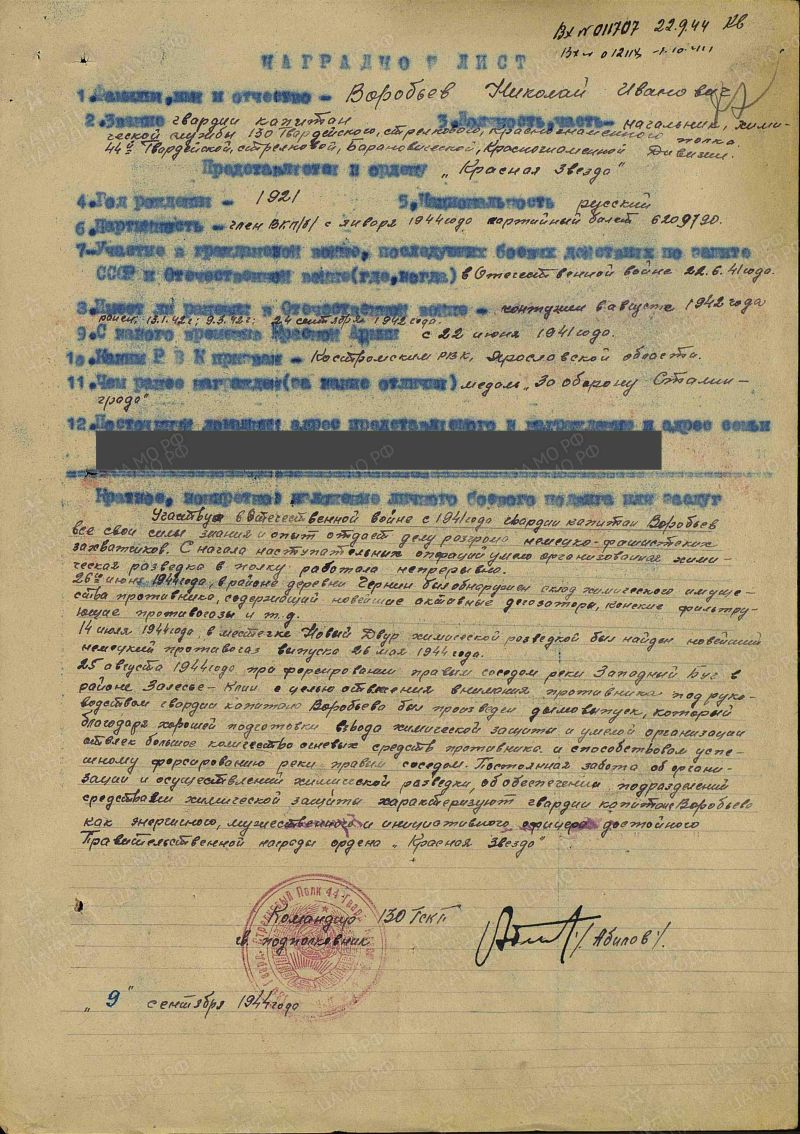 Вх № 011707 22.9.44
НАГРАДНОЙ ЛИСТ
1. Фамилия, имя и отчество – Воробьев Николай Иванович
2. Звание гвардии капитан 3. Должность, часть – начальник хими-
ческой службы 130 Гвардейского, стрелкового, краснознаменного полка
44й Гвардейской, стрелковой, Барановической, Краснознаменной Дивизии.
Представляется к ордену „Красная Звезда"
4. Год рождения – 1921 5. Национальность русский
6. Партийность – член ВКП/б/ с января 1944 года партийный билет 6209790.
7. Участие в гражданской войне, последующих боевых действиях по защите
СССР и Отечественной войне (где, когда) в Отечественной войне 22.6.41 года.
8. Имеет ли ранения в Отечественной войне – контужен в августе 1942 года
ранен: 13.1.42 г; 9.3.42 г; 24 сентября 1942 года.
9. С какого времени Красной Армии с 22 июня 1941 года.
10. Каким РВК призван – Костромским РВК, Ярославской области.
11. Чем ранее награжден (за какие отличия) медаль „За оборону Сталин-
града"
12. Постоянный домашний адрес представляемого к награждению и адрес семьи
Краткое, конкретное изложение личного боевого подвига или заслуг
Участвуя в Отечественной войне с 1941 года гвардии капитан Воробьев
все свои силы знания и опыт отдает делу разгрома немецко-фашистских
захватчиков. С начала наступательных операций умело организованная хими-
ческая разведка в полку работала непрерывно.
26го июня 1944 года, в районе деревни Чернин был обнаружен склад химического имуще-
ства противника, содерживший новейшие активные дегозаторы, конские фильтру-
ющие противогазы и т.д.
14 июля 1944 года, в местечке Новый Двур химической разведкой был найден новейший
немецкий противогаз выпуска 26 мая 1944 года.
25 августа 1944 года при форсировании правым соседом реки Западный Буг в
районе Залесье – с целью отвлечения внимания противника под руко-
водством гвардии капитана Воробьева был произведен дымовыпуск, который
благодаря хорошей подготовки взвода химической защиты и умелой организации
отвлек большое количество огневых средств противника и способствовал успе-
шному форсированию реки правым соседом. Постоянная забота об органи-
зации и осуществлении химической разведки, об обеспечении подразделений
средствами химической защиты характеризуют гвардии капитан Воробьева
как энергичного, мужественного и инициативного офицера достойного
Правительственной награды ордена „Красная Звезда"
Командир 130 ГСКП
гв. подполковник /Абилов/.
„9" сентября 1944 года